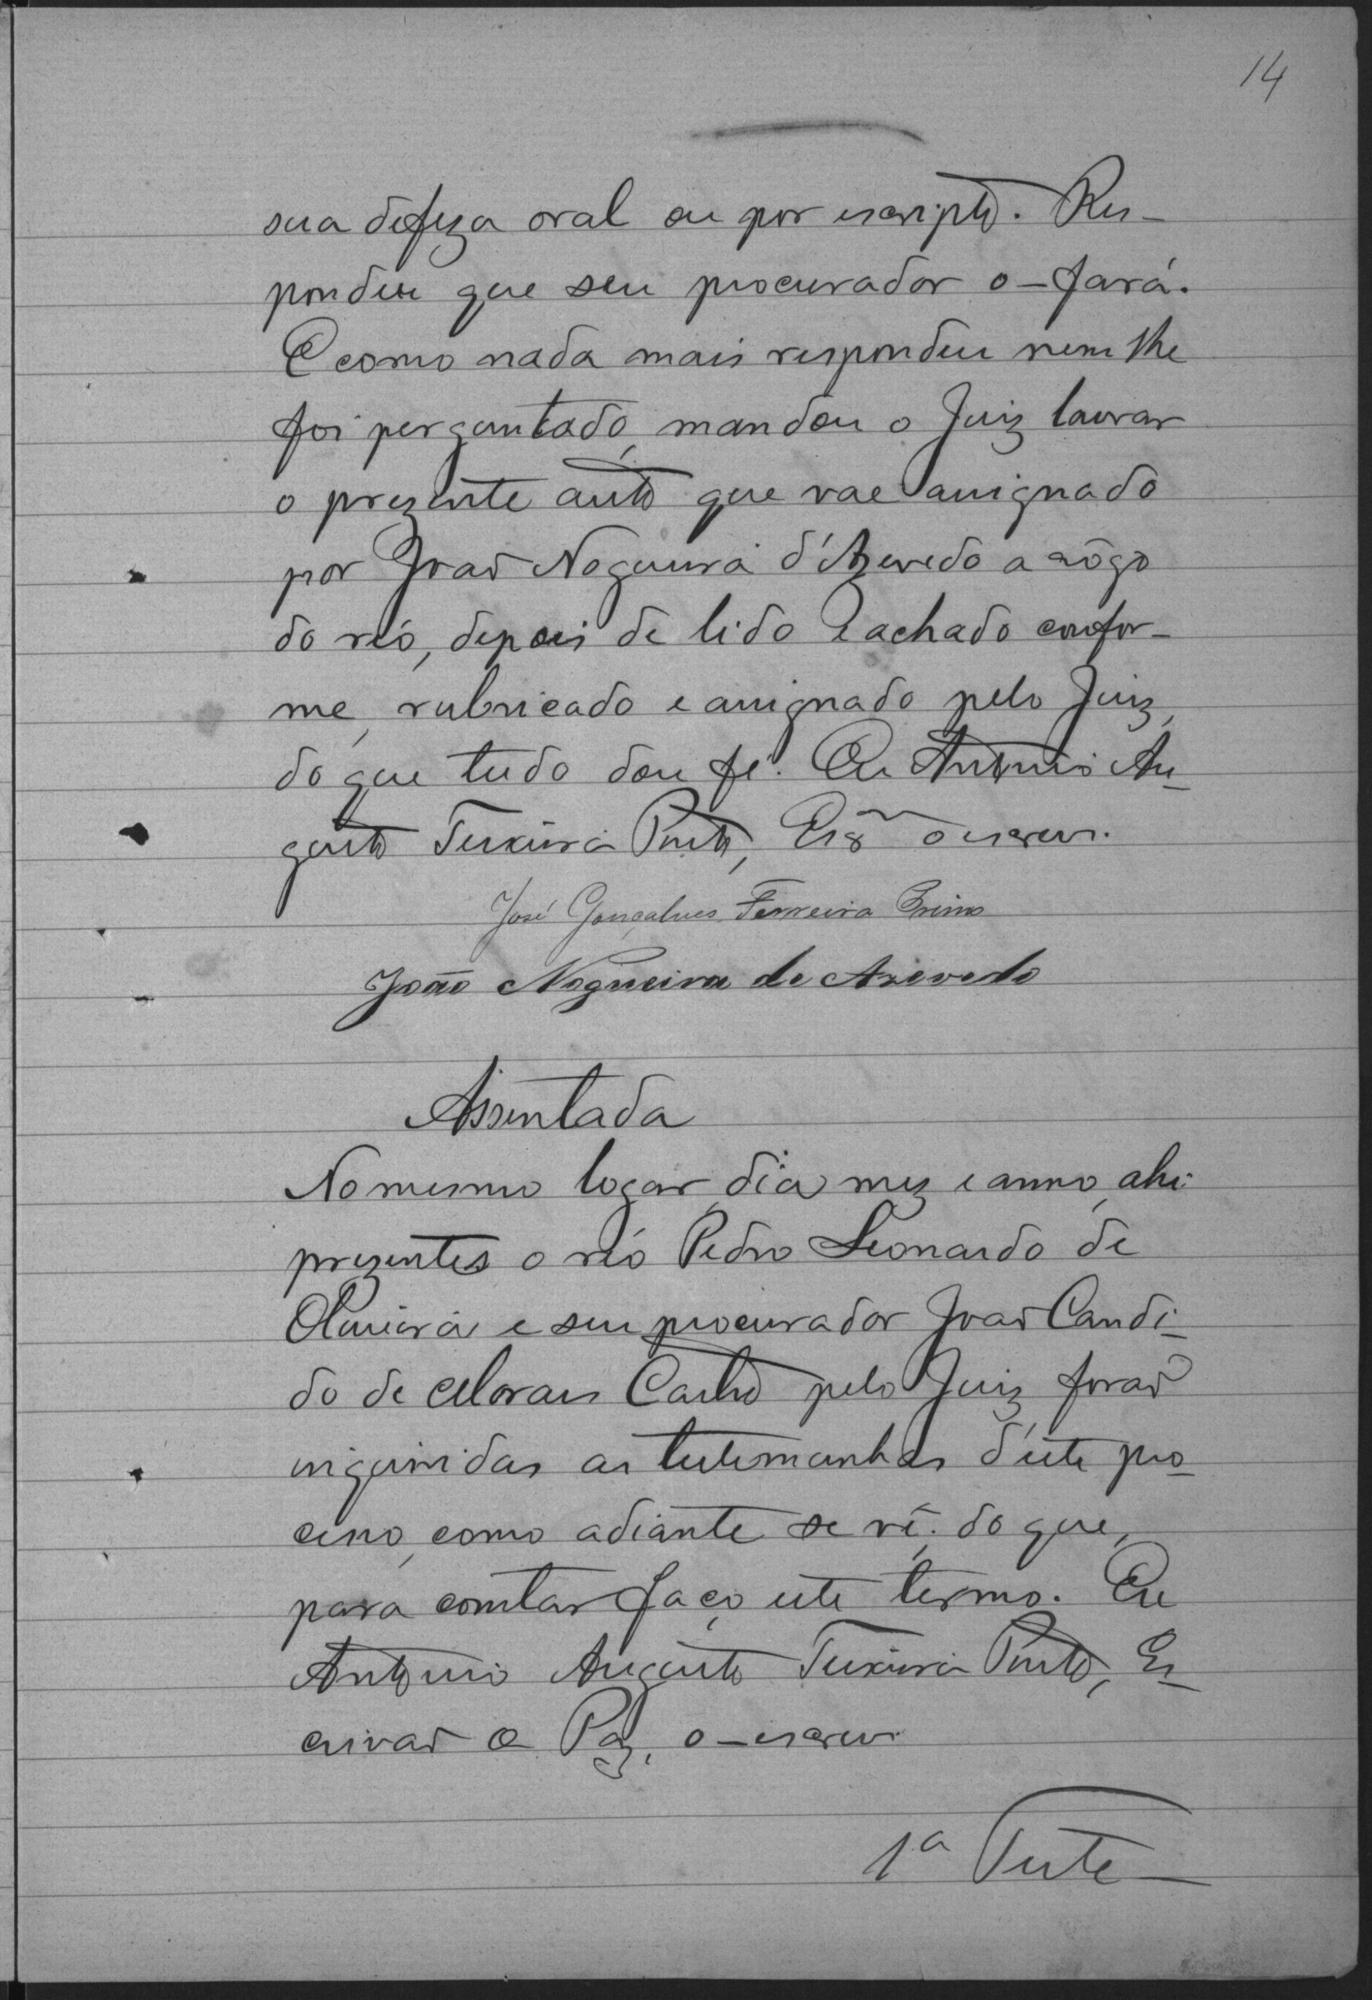 14
sua defeza oral ou por escripto. Res-
pondeu que seu procurador o-fará.
E como nada mais respondeu nem lhe
foi perguntado, mandou o Juiz lavrar
o prezente auto que vae assignado
por João Nogueira d'Azevedo a rôgo
do réo, depois de lido e achado confor-
me, rubricado e assignado pelo Juiz,
do que tudo dou fé. Eu Antonio Au-
gusto Teixeira Pinto, Esc.ᵐ o escrevi.
José Gonçalves Ferreira Primo
João Nogueira de Azevedo
Assentada
No mesmo logar, dia, mez e anno, ahi
prezentes o réo Pedro Leonardo de
Oliveira e seu procurador João Candi-
do de Moraes Castro pelo Juiz forão
inquiridas as testemunhas d'este pro-
cesso, como adiante se vê; do que,
para constar faço este termo. Eu
Antonio Augusto Teixeira Pinto, Es-
crivão e Paz, o-escrevi
1ª Teste-